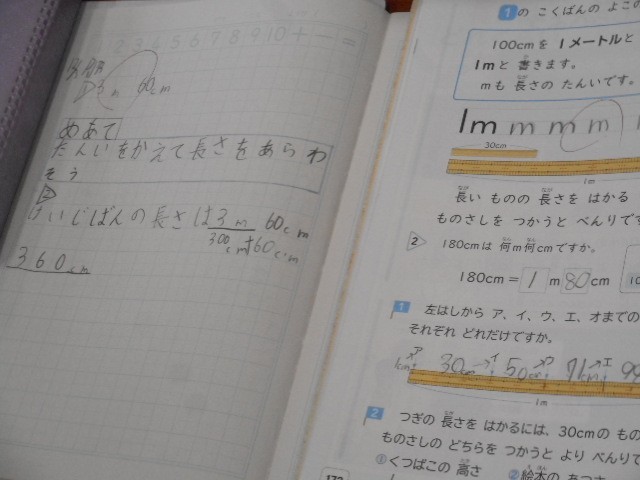 2 3 4 5 6 7 8 9 10 + - =
3m 60cm
めあて
たんいをかえて長さをあらわ
そう
2
けいじばんの長さは3m 60cm
300cm+60cm
360cm
1 の こくばんの よこの
100cmを 1メートルと
1mと 書きます。
mも 長さの たんいです。
1m m m m
30cm
1m
長い ものの 長さを はかる
ものさしを つかうと べんりで
2 180cmは 何m何cmですか。
180cm = 1 m 80 cm
1 左はしから ア、イ、ウ、エ、オまでの
それぞれ どれだけですか。
1cm ア 30cm イ 50cm ウ 71cm エ 99
1m
2 つぎの 長さを はかるには、30cmの もの
ものさしの どちらを つかうと より べんりで
①くつばこの 高さ ②絵本の あつさ
173